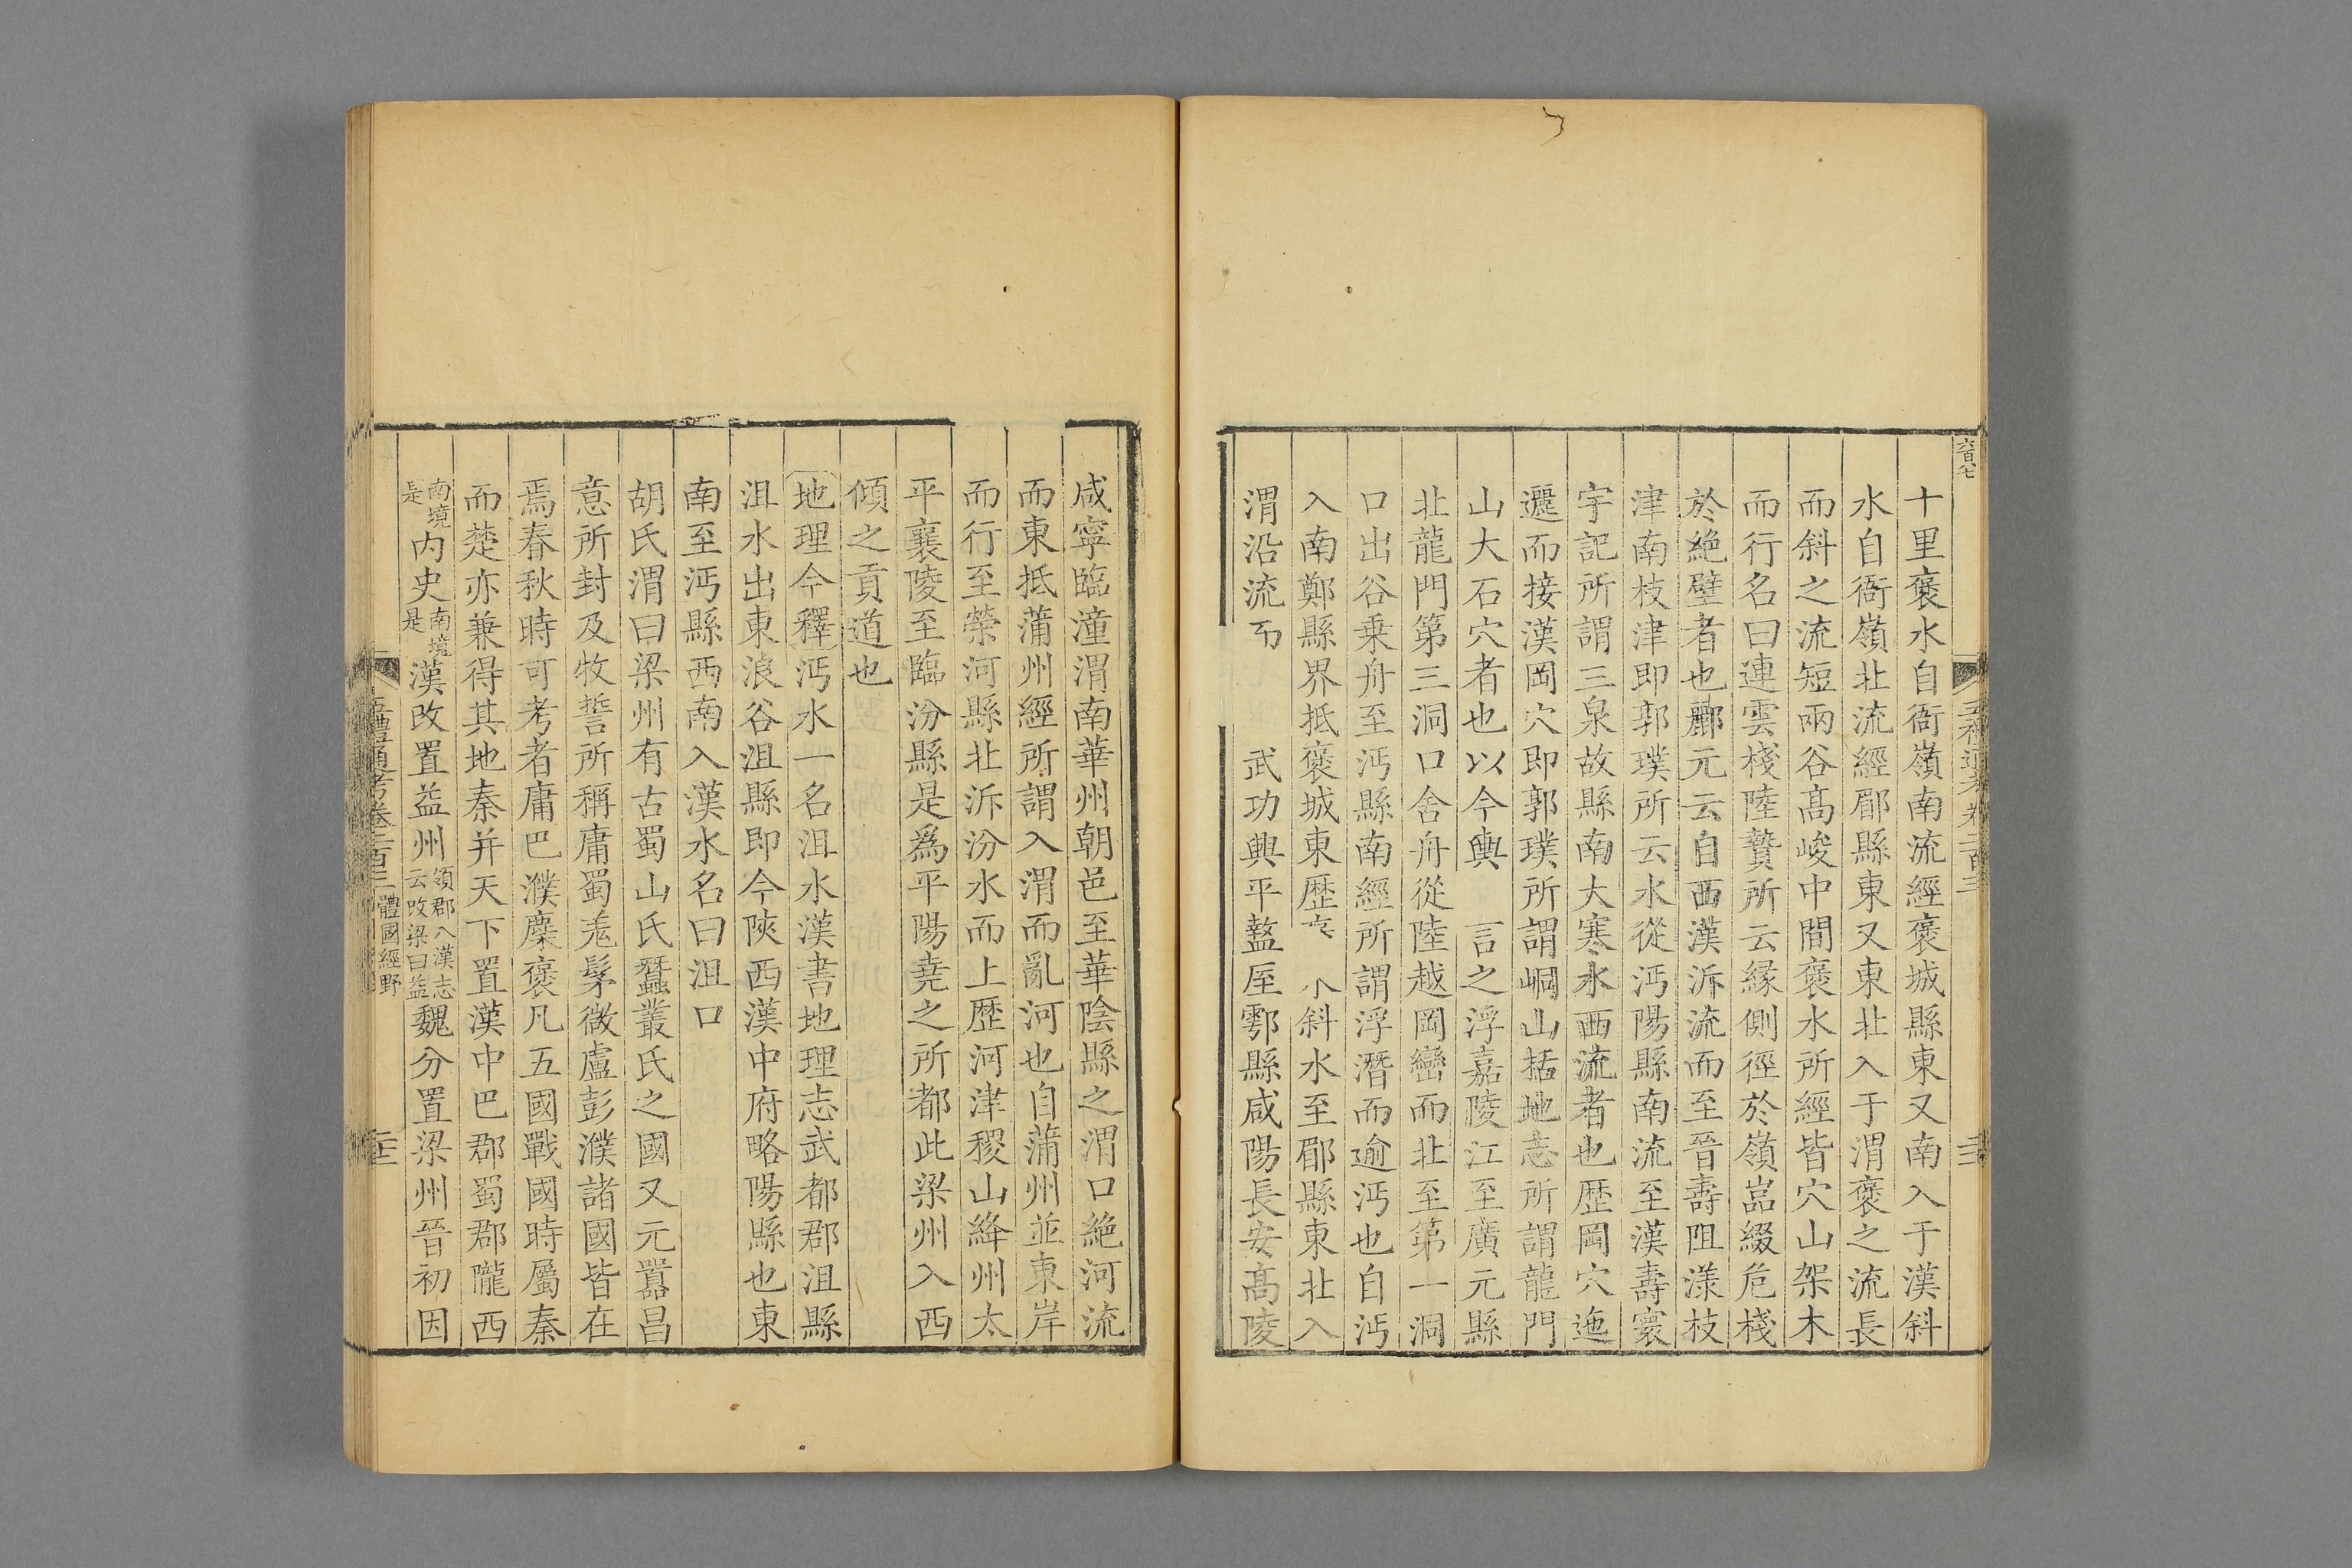 十里褒水自衙嶺南流經褒城縣東又南入于漢斜
水自衙嶺北流經郿縣東又東北入于渭褒之流長
而斜之流短兩谷高峻中間褒水所經皆穴山架木
而行名曰連雲棧陸贄所云緣側徑於嶺嵓綴危棧
於絶壁者也酈元云自西漢泝流而至晉壽阻漾枝
津南枝津即郭璞所云水從沔陽縣南流至漢壽寰
宇記所謂三泉故縣南大寒水西流者也歷岡穴迤
邐而接漢岡穴即郭璞所謂峒山括地志所謂龍門
山大石穴者也以今輿 言之浮嘉陵江至廣元縣
北龍門第三洞口舍舟從陸越岡巒而北至第一洞
口出谷乗舟至沔縣南經所謂浮潛而逾沔也自沔
入南鄭縣界抵褒城東歷 斜水至郿縣東北入
渭沿流而 武功興平盩厔鄠縣咸陽長安高陵
咸寧臨潼渭南華州朝邑至華陰縣之渭口絶河流
而東抵蒲州經所謂入渭而亂河也自蒲州並東岸
而行至榮河縣北泝汾水而上歷河津稷山絳州太
平襄陵至臨汾縣是爲平陽堯之所都此梁州入西
傾之貢道也
地理今釋沔水一名沮水漢書地理志武都郡沮縣
沮水出東浪谷沮縣即今陝西漢中府略陽縣也東
南至沔縣西南入漢水名曰沮口
胡氏渭曰梁州有古蜀山氏蠶叢氏之國又元囂昌
意所封及牧誓所稱庸蜀羌髳微盧彭濮諸國皆在
焉春秋時可考者庸巴濮麇褒凡五國戰國時屬秦
而楚亦兼得其地秦并天下置漢中巴郡蜀郡隴西
南境是內史南境是漢改置益州領郡八漢志云改梁曰益魏分置梁州晉初因
五禮通考卷二百三 體國經野